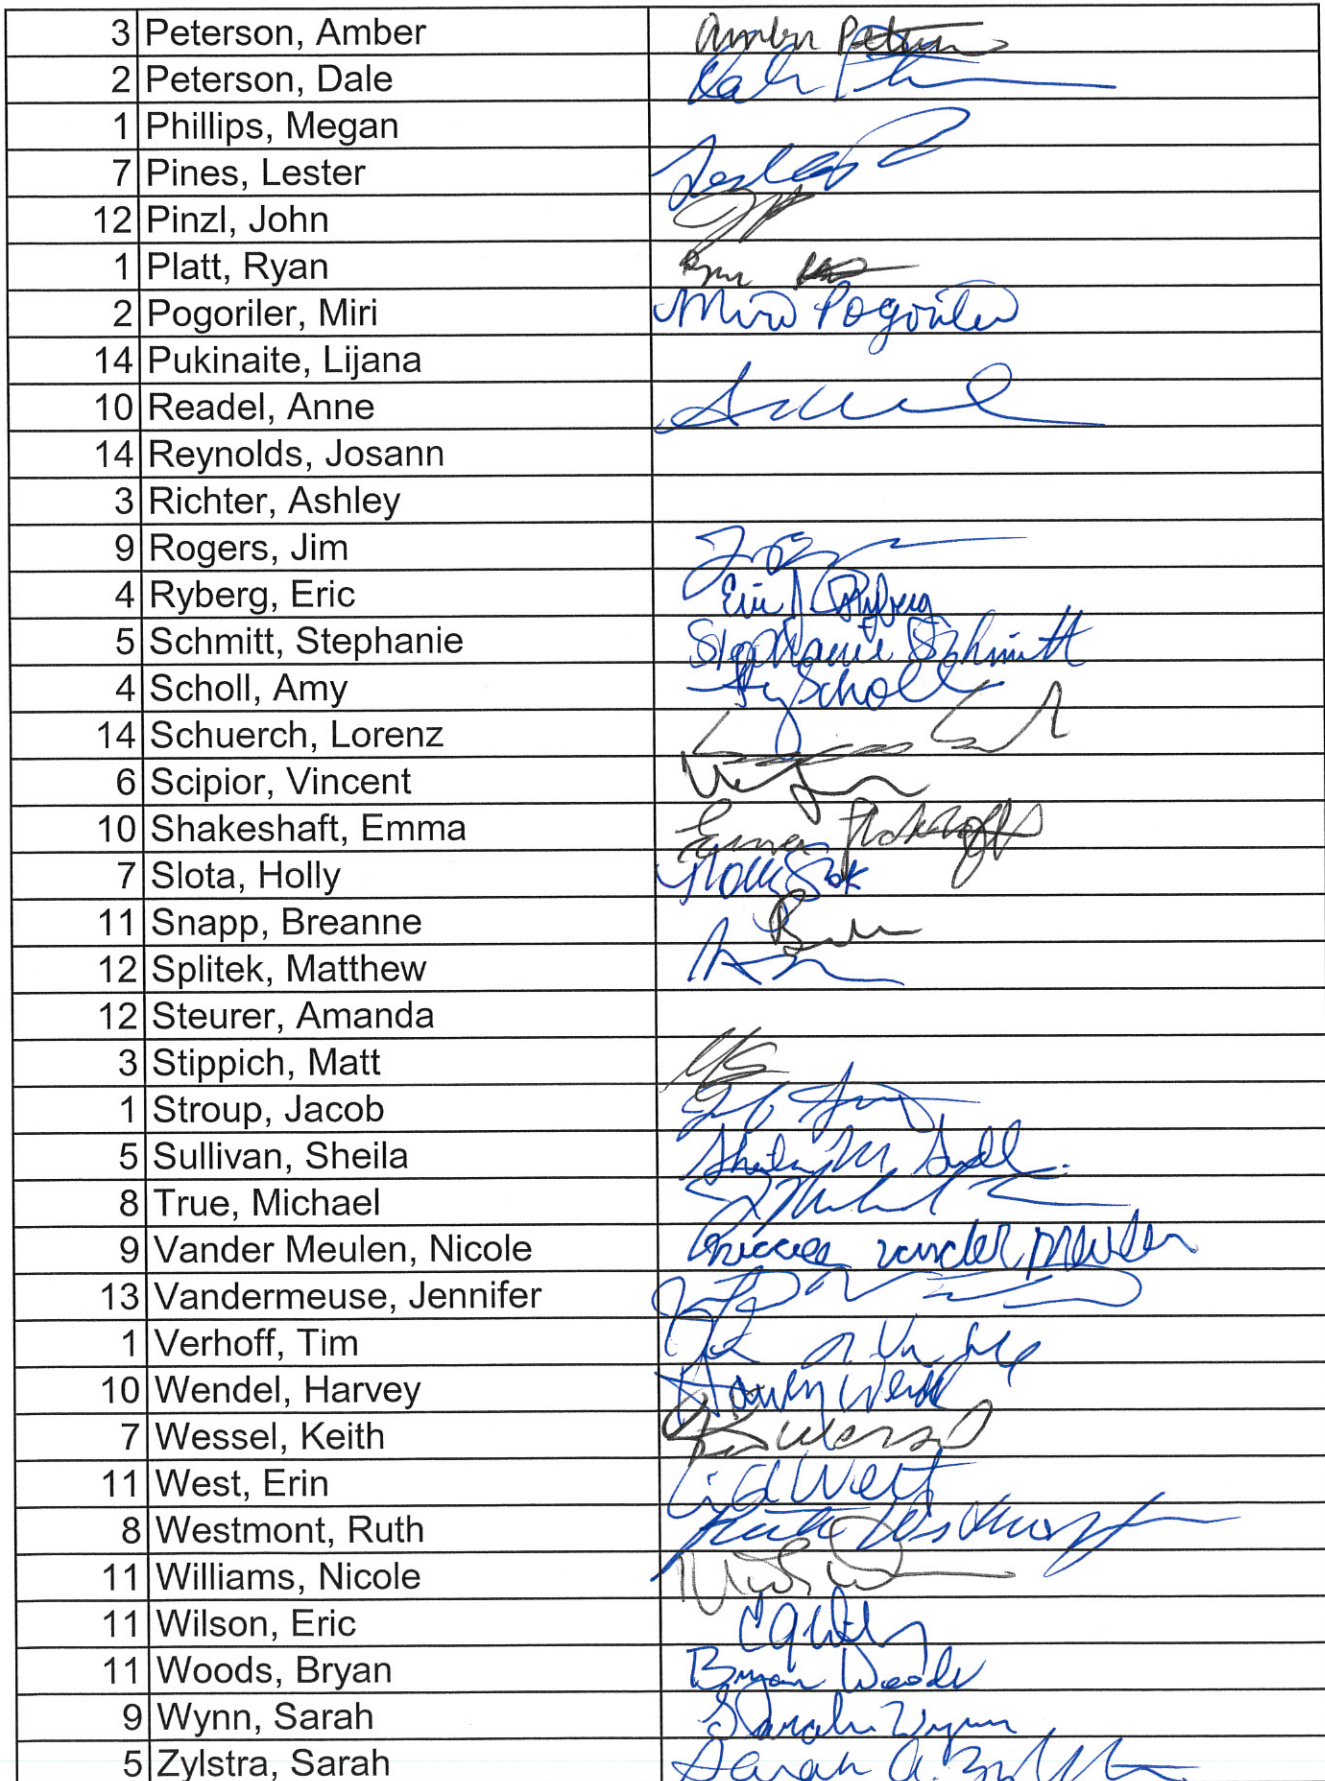 3 Peterson, Amber Amber Peterson
2 Peterson, Dale
1 Phillips, Megan
7 Pines, Lester
12 Pinzl, John
1 Platt, Ryan
2 Pogoriler, Miri Miri Pogoriler
14 Pukinaite, Lijana
10 Readel, Anne
14 Reynolds, Josann
3 Richter, Ashley
9 Rogers, Jim
4 Ryberg, Eric Eric J Ryberg
5 Schmitt, Stephanie Stephanie Schmitt
4 Scholl, Amy Scholl
14 Schuerch, Lorenz
6 Scipior, Vincent
10 Shakeshaft, Emma Emma Shakeshaft
7 Slota, Holly Holly
11 Snapp, Breanne
12 Splitek, Matthew
12 Steurer, Amanda
3 Stippich, Matt MS
1 Stroup, Jacob
5 Sullivan, Sheila Sheila M
8 True, Michael
9 Vander Meulen, Nicole Nicole Vander Meulen
13 Vandermeuse, Jennifer
1 Verhoff, Tim
10 Wendel, Harvey Harvey Wendel
7 Wessel, Keith Wessel
11 West, Erin West
8 Westmont, Ruth Ruth Westmont
11 Williams, Nicole
11 Wilson, Eric
11 Woods, Bryan Bryan Woods
9 Wynn, Sarah Sarah Wynn
5 Zylstra, Sarah Sarah A.